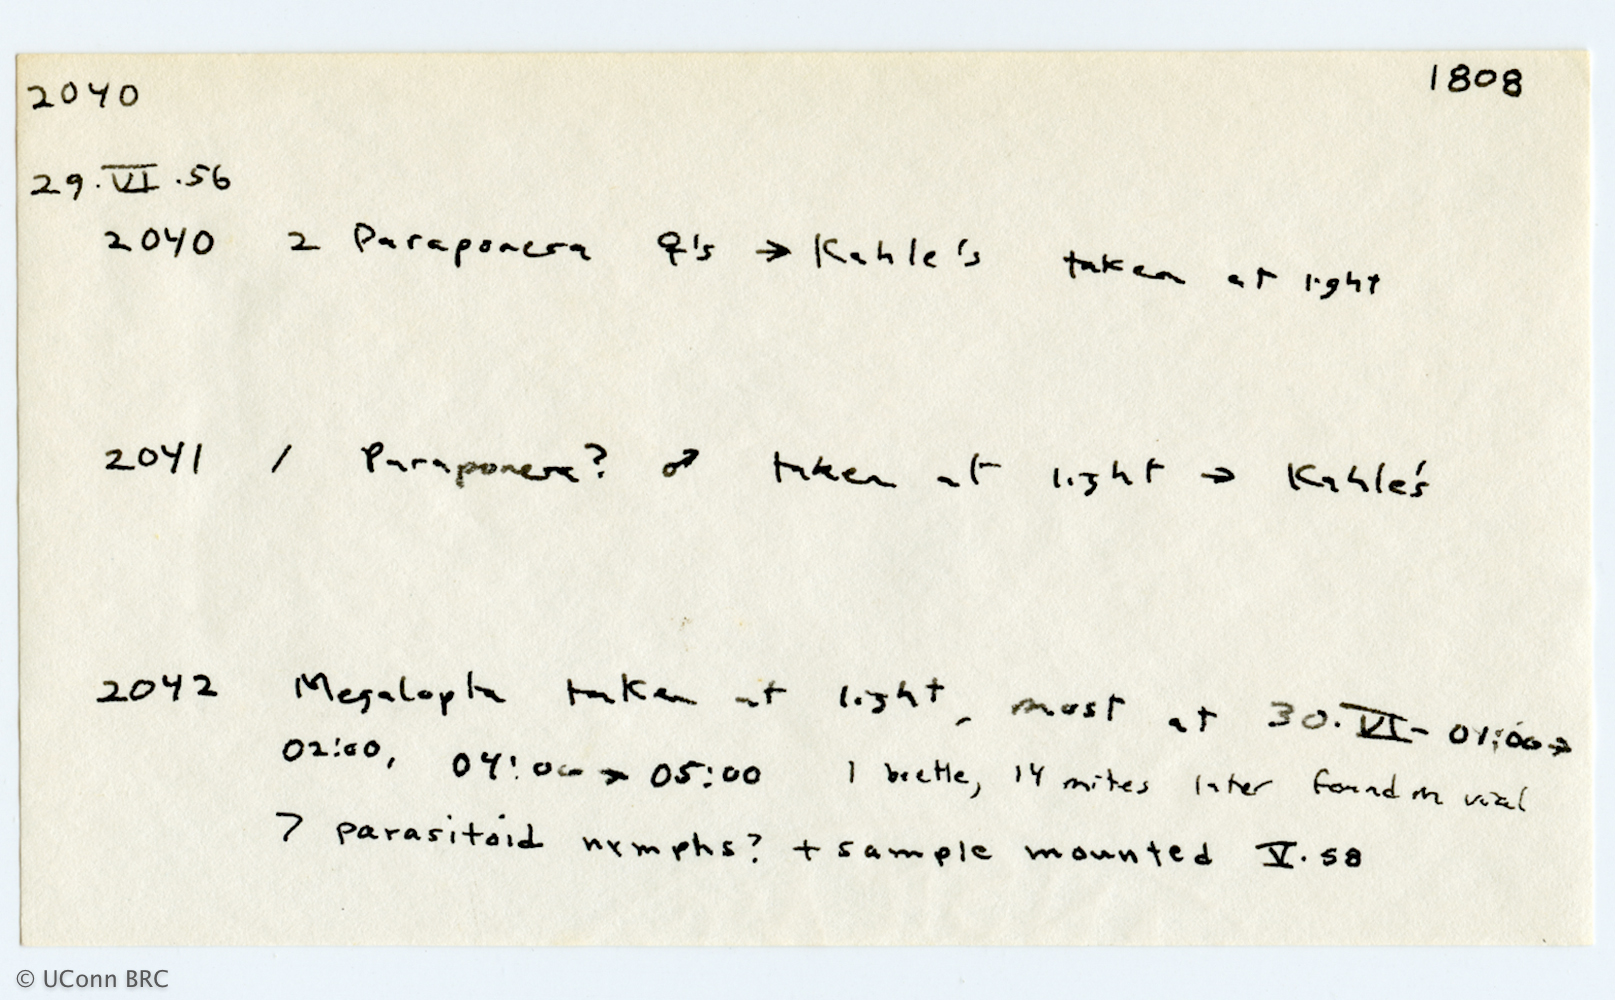 2040 1808
29.VI.56
2040 2 Paraponera ♀'s → Kahle's taken at light
2041 1 Paraponera? ♂ taken at light → Kahle's
2042 Megalopta taken at light, most at 30.VI- 01:00→
02:00, 04:00 → 05:00 1 beetle, 14 mites later found in vial
7 parasitoid nymphs? + sample mounted V.58
© UConn BRC